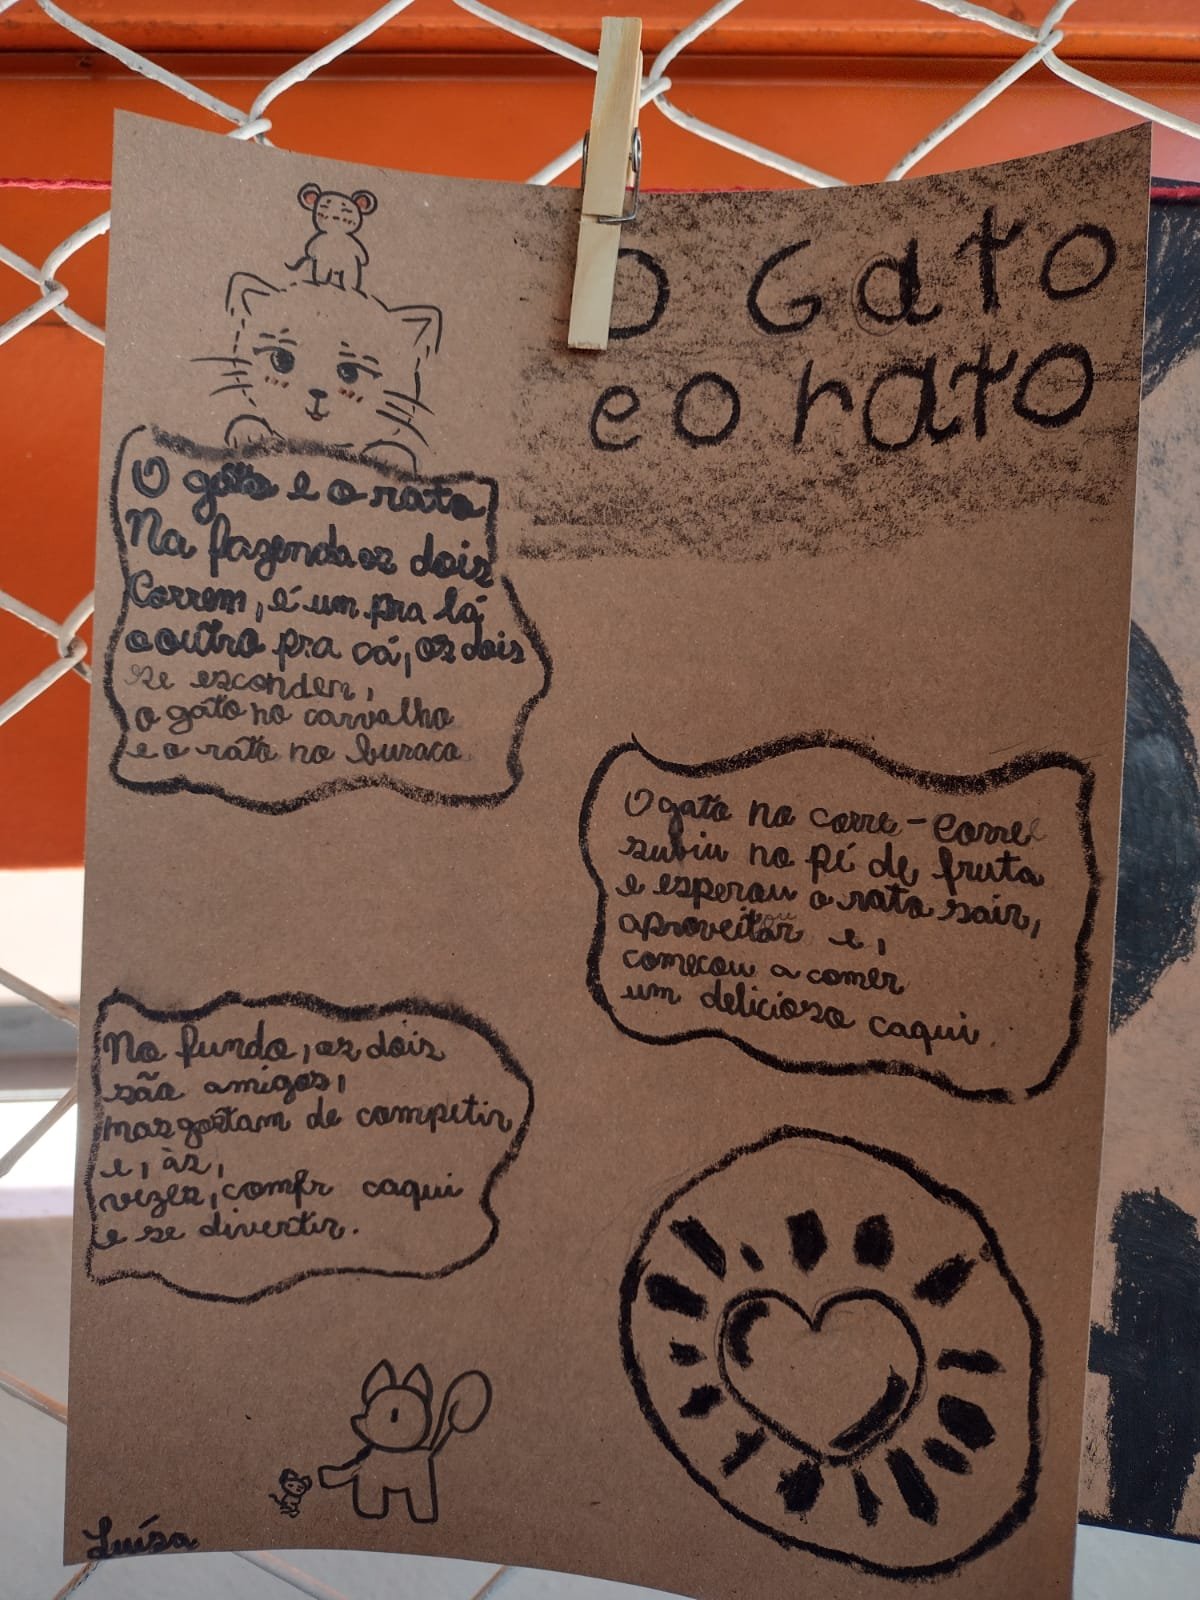 O Gato
e o rato
O gato e o rato
Na fazenda os dois
Correm, é um pra lá
o outro pra cá, os dois
se escondem,
o gato no carvalho
e o rato no buraco
O gato no corre-corre
subiu no pé de fruta
e esperou o rato sair,
aproveitou e,
começou a comer
um delicioso caqui.
No fundo, os dois
são amigos,
mas gostam de competir
e, às,
vezes, comer caqui
e se divertir.
Luísa